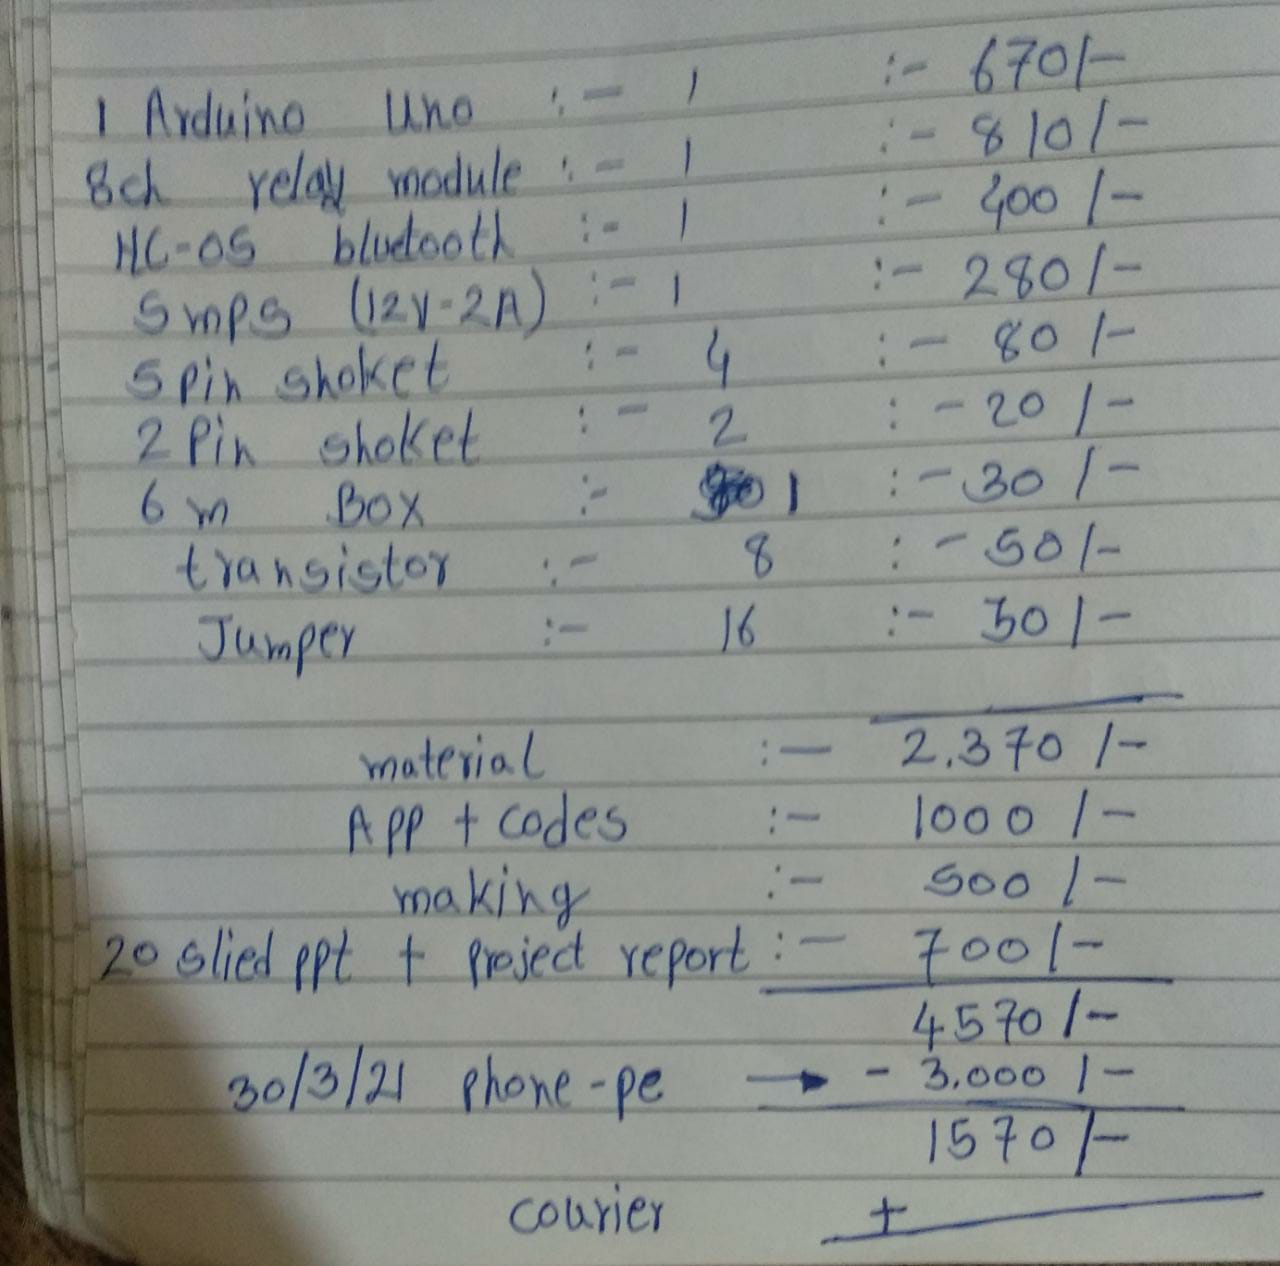 1 Arduino Uno :- 1 :- 670/-
8ch relay module :- 1 :- 810/-
HC-05 bluetooth :- 1 :- 400/-
Smps (12V-2A) :- 1 :- 280/-
5 pin shoket :- 4 :- 80/-
2 Pin shoket :- 2 :- 20/-
6 m Box :- 1 :- 30/-
transistor :- 8 :- 50/-
Jumper :- 16 :- 30/-
material :- 2.370/-
App + codes :- 1000/-
making :- 500/-
20 slied ppt + project report :- 700/-
4570/-
30/3/21 phone-pe → - 3.000/-
1570/-
courier +